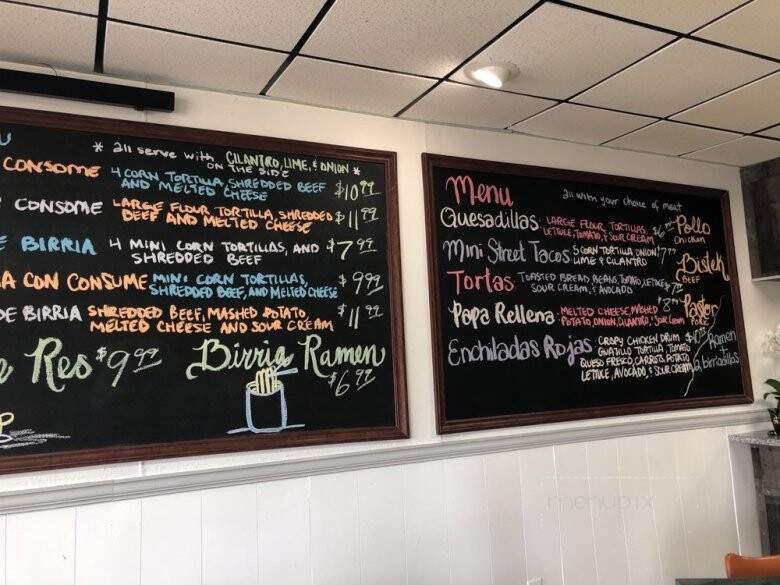 U
* all serve with, CILANTRO, LIME, & ONION *
ON THE SIDE
CONSOME 4 CORN TORTILLA, SHREDDED BEEF $10.99
AND MELTED CHEESE
CONSOME LARGE FLOUR TORTILLA, SHREDDED $11.99
BEEF AND MELTED CHEESE
E BIRRIA 4 MINI CORN TORTILLAS, AND $7.99
SHREDDED BEEF
A CON CONSUME MINI CORN TORTILLAS, $9.99
SHREDDED BEEF, AND MELTED CHEESE
DE BIRRIA SHREDDED BEEF, MASHED POTATO, $11.99
MELTED CHEESE AND SOUR CREAM
e Res $9.99
Birria Ramen
$6.99
Menu
all with your choice of meat
Quesadillas: LARGE FLOUR TORTILLAS,
LETTUCE, TOMATO, & SOUR CREAM
Mini Street Tacos: 5 CORN TORTILLA, ONION, 7.99
LIME & CILANTRO
Tortas: TOASTED BREAD, BEANS, TOMATO, LETTUCE
SOUR CREAM, & AVOCADO
Papa Rellena: MELTED CHEESE, MASHED
POTATO, ONION, CILANTRO, & SOUR CREAM
Enchiladas Rojas: CRISPY CHICKEN DRUM
GUAJILLO TORTILLA, TOMATO,
QUESO FRESCO, CARROTS, POTATO,
LETTUCE, AVOCADO, & SOUR CREAM
Pollo
Chicken
Bistek
BEEF
Pastor
PORK
Ramen
+
2 birriadillas
menupix